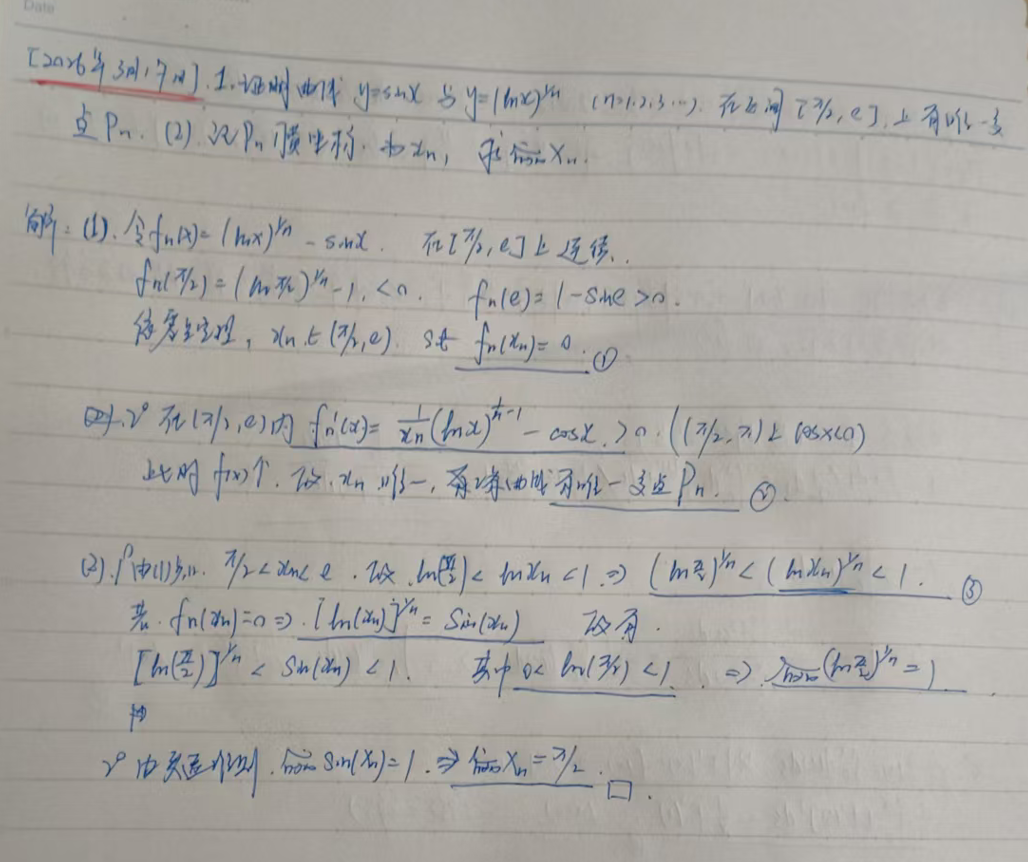 Date
[2026年3月,7日].1.证明曲线 y=sinx 与 y=(lnx)^{1/n} (n=1,2,3…). 在区间[π/2, e].上有唯一交
点Pn. (2).设Pn横坐标.为xn, 求lim_{n→∞}Xn.
解:(1).令fn(x)=(lnx)^{1/n} - sinx. 在[π/2, e]上连续.
fn(π/2)=(lnπ/2)^{1/n}-1.<0. fn(e)=1-sine>0.
零点定理, xn∈(π/2, e). st fn(xn)=0.①.
2°在(π/2, e)内 fn'(x)=\frac{1}{xn}(lnx)^{\frac{1}{n}-1}-cosx.>0.((π/2, π)上cosx<0)
此时f(x)↑. 故.xn唯一, 曲线有唯一交点Pn. ②.
(2).1°由(1)知. π/2<xn<e. 故.ln(\frac{π}{2})<lnxn<1 ⇒ (ln\frac{π}{2})^{1/n}<(lnxn)^{1/n}<1. ③
fn(xn)=0⇒.[ln(xn)]^{1/n}=Sin(xn) 故有.
[ln(\frac{π}{2})]^{1/n}<Sin(xn)<1. 其中0<ln(π/2)<1. ⇒.lim_{n→∞}(ln\frac{π}{2})^{1/n}=1
2°由夹逼准则.lim_{n→∞}Sin(xn)=1.⇒lim_{n→∞}Xn=π/2. □.